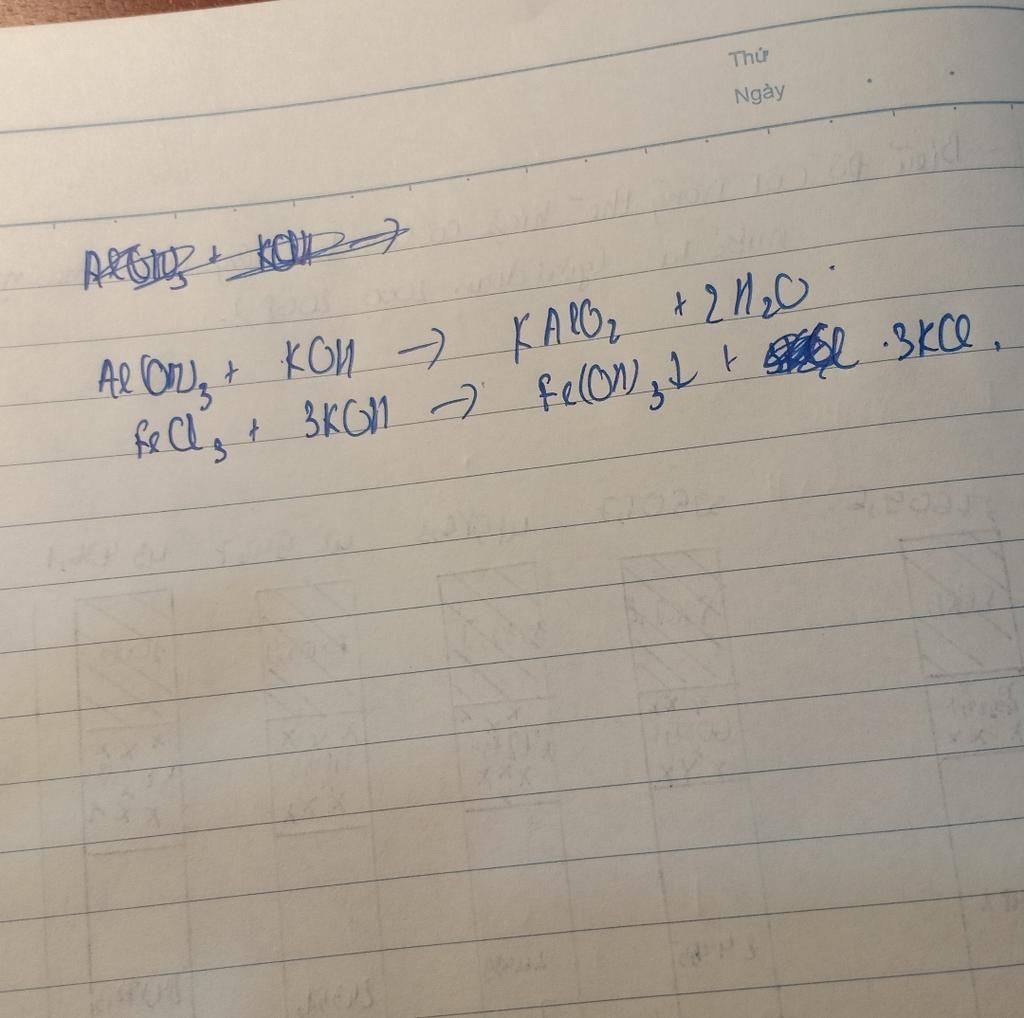 Thứ
Ngày
Al(OH)₃ + KOH →
Al(OH)₃ + KOH → KAlO₂ + 2H₂O
FeCl₃ + 3KOH → Fe(OH)₃↓ + 3KCl.